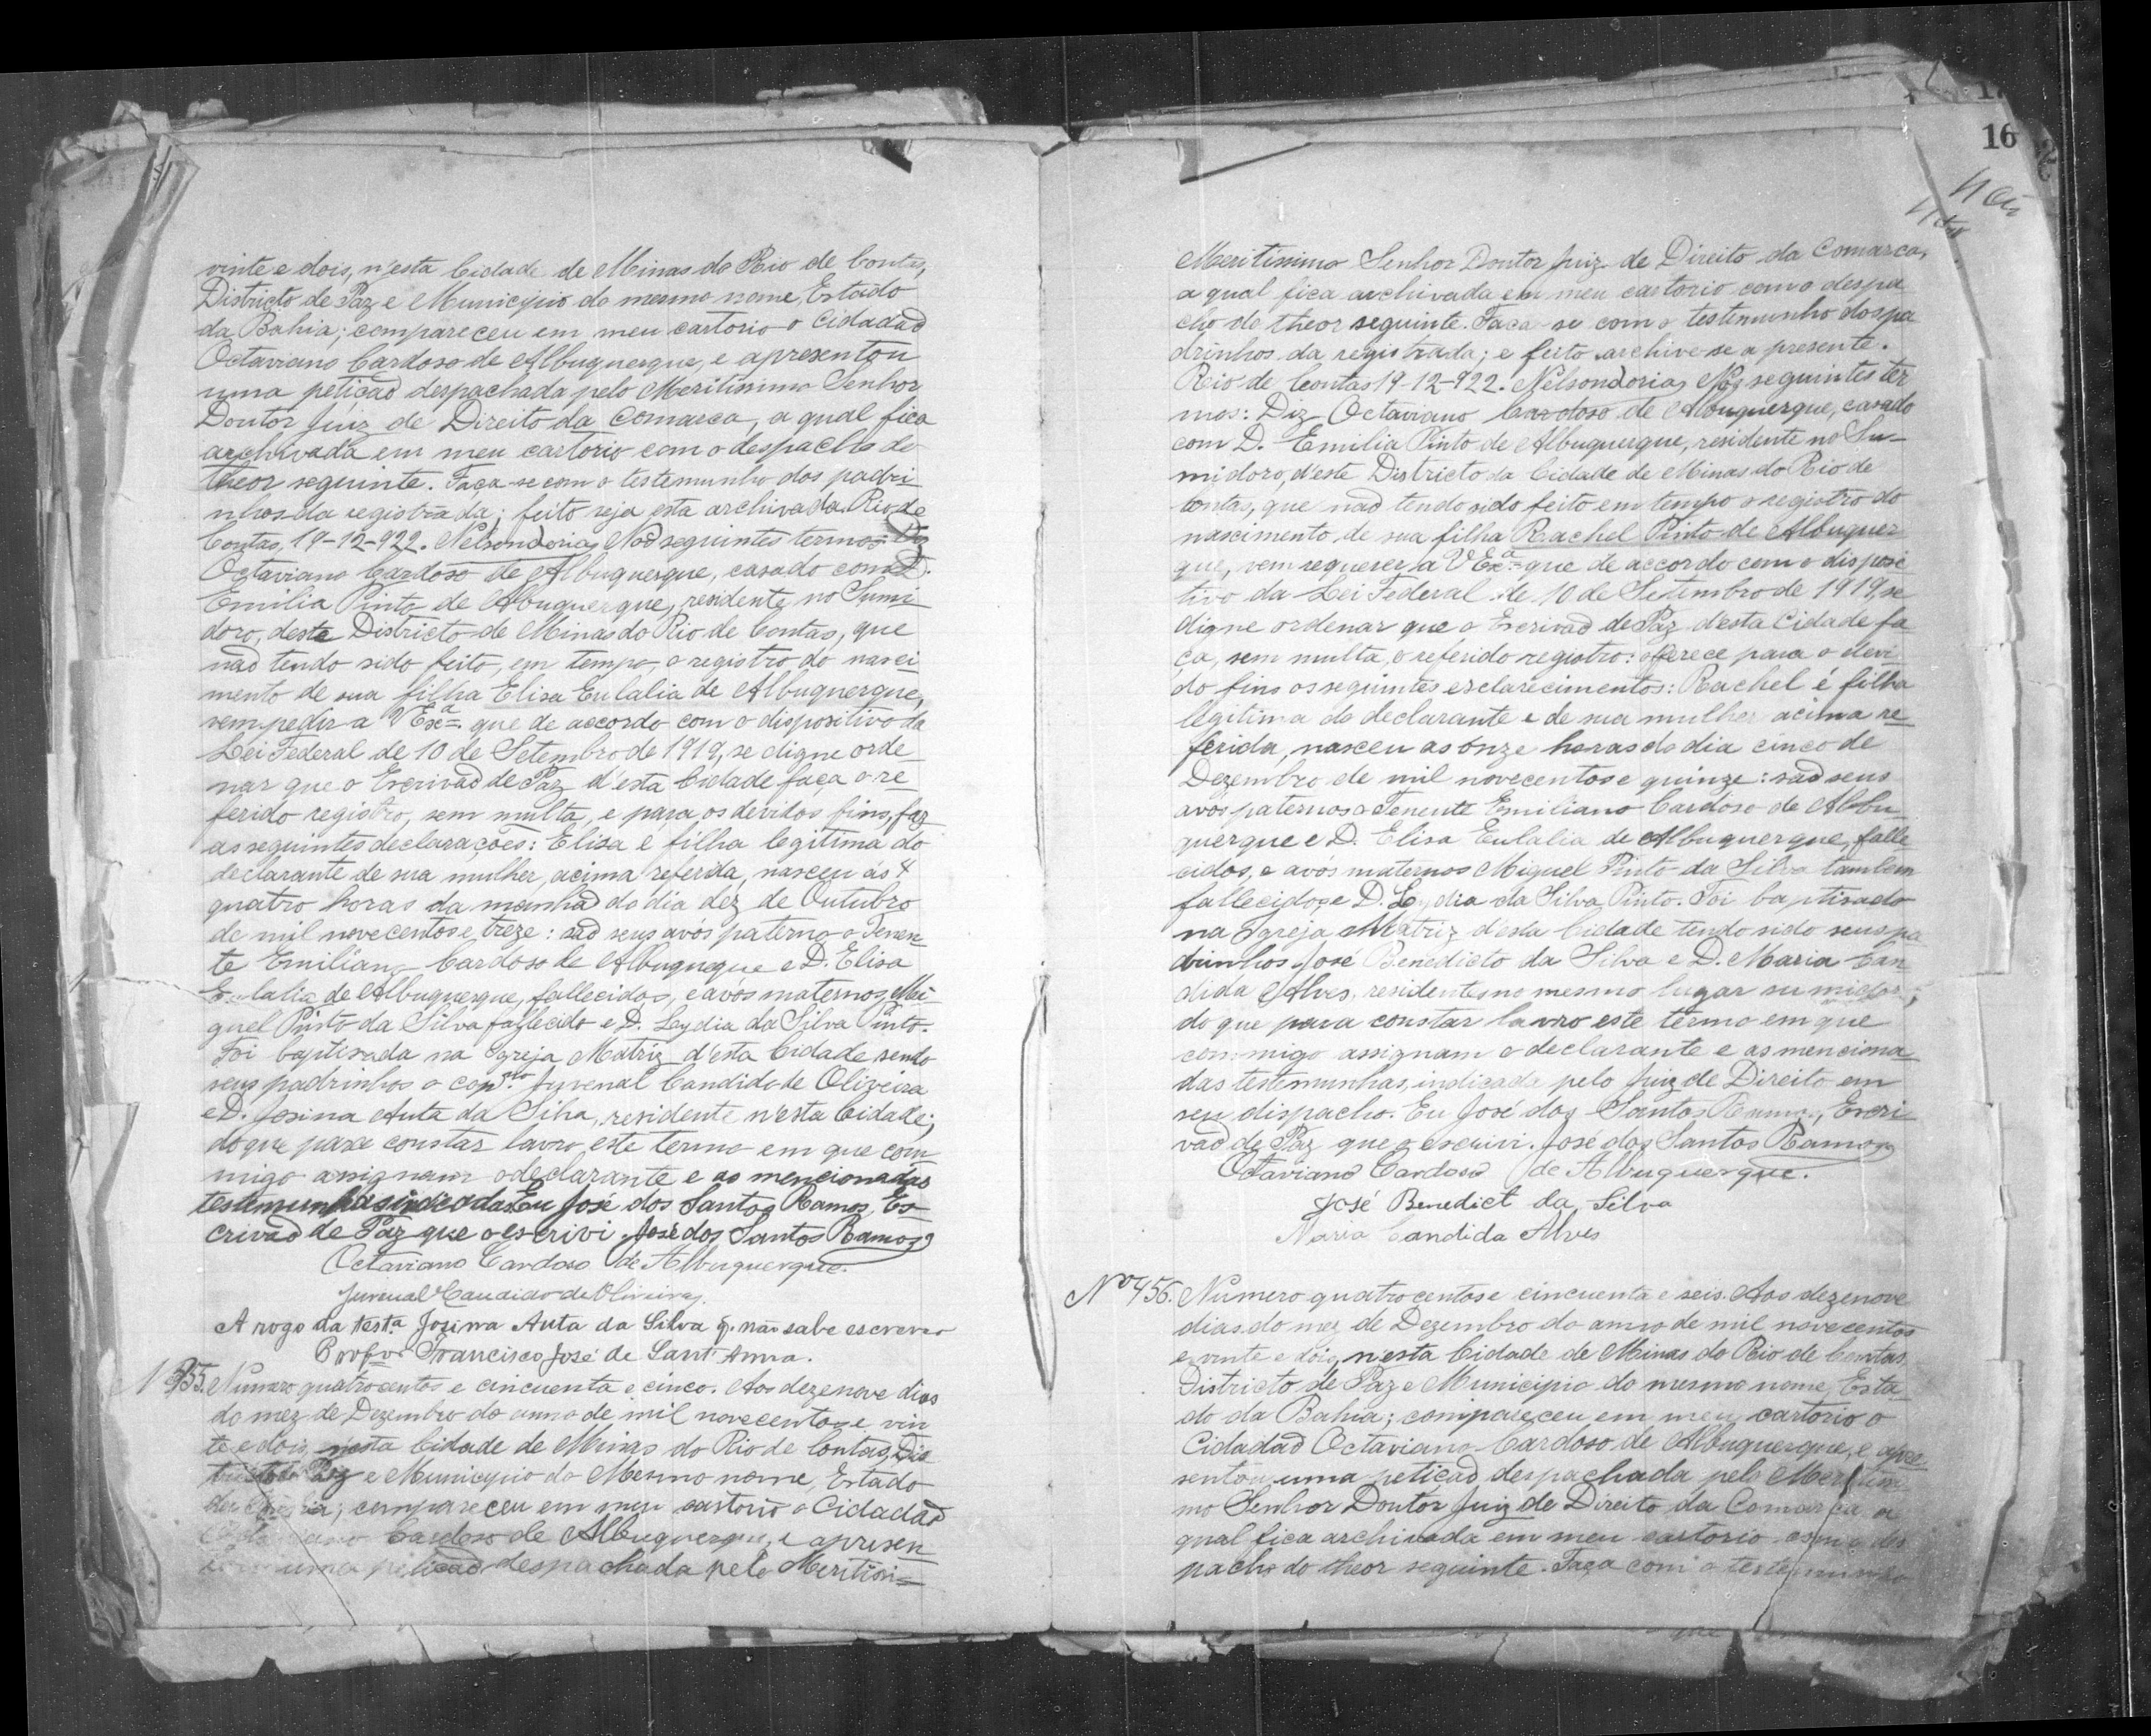 vinte e dois, n'esta Cidade de Minas do Rio de Contas,
Districto de Paz e Municipio do mesmo nome, Estado
da Bahia; compareceu em meu cartorio o Cidadaõ
Octaviano Cardoso de Albuquerque, e apresentou
uma petiçaõ despachada pelo Meritissimo Senhor
Doutor Juiz de Direito da Comarca, a qual fica
archivada em meu cartorio com o despacho do
theor seguinte. Faça-se com o testemunho dos padri
nhos da registrada; feito seja esta archivada. Rio de
Contas, 19-12-922. Nelsondoria, Nos seguintes termos: Diz
Octaviano Cardoso de Albuquerque, casado com D.
Emilia Pinto de Albuquerque, residente no Sumi
doro, deste Districto de Minas do Rio de Contas, que
naõ tendo sido feito, em tempo, o registro do nasci
mento de sua filha Elisa Eulalia de Albuquerque,
vem pedir a V Exª que de accordo com o dispositivo da
Lei Federal de 10 de Setembro de 1919, se digne orde
nar que o Escrivaõ de Paz d'esta Cidade faça o re
ferido registro, sem multa, e para os devidos fins, faz
as seguintes declarações: Elisa é filha legitima do
declarante de sua mulher, acima referida, nasceu ás 4
quatro horas da manhaõ do dia dez de Outubro
de mil novecentos e treze: saõ seus avós paterno o Tenen
te Emiliano Cardoso de Albuqueque e D. Elisa
Eulalia de Albuquerque, fallecidos, e avós maternos Mi
guel Pinto da Silva fallecido e D. Leydia da Silva Pinto.
Foi baptisada na Igreja Matriz d'esta Cidade sendo
seus padrinhos o Juvenal Candido de Oliveira
e D. Josina Auta da Silva, residente n'esta Cidade;
do que para constar lavro este termo em que com
migo assignam o declarante e as mencionadas
testemunhas indicadas. Eu José dos Santos Ramos, Es
crivaõ de Paz que o escrivi. José dos Santos Ramos
Octaviano Cardoso de Albuquerque.
Juvenal Candido de Oliveira.
A rogo da testª Josina Auta da Silva q. não sabe escrever
Profor Francisco José de Sant'Anna.
455. Numero quatrocentos e cincuenta e cinco. Aos dezenove dias
do mez de Dezembro do anno de mil novecentos e vin
te e dois, n'esta Cidade de Minas do Rio de Contas, Dis
tricto de Paz e Municipio do Mesmo nome, Estado
da Bahia; compareceu em meu cartorio o Cidadaõ
Octaviano Cardoso de Albuquerque, e apresen
tou uma petiçaõ despachada pelo Meritissi=
16
Meritissimo Senhor Doutor Juiz de Direito da Comarca,
a qual fica archivada em meu cartorio com o despa
cho do theor seguinte. Faça-se com o testemunho dos pa
drinhos da registrada; e feito archive-se a presente.
Rio de Contas 19-12-922. Nelsondoria, Nos seguintes ter
mos: Diz Octaviano Cardoso de Albuquerque, casado
com D. Emilia Pinto de Albuquerque, residente no Su-
midoro, d'este Districto da Cidade de Minas do Rio de
Contas, que naõ tendo sido feito em tempo o registro do
nascimento de sua filha Rachel Pinto de Albuquer
que, vem requerer a V Exª que de accordo com o disposi
tivo da Lei Federal de 10 de Setembro de 1919, se
digne ordenar que o Escrivaõ de Paz d'esta Cidade fa
ça, sem multa, o referido registro: offerece para o devi
do fins os seguintes esclarecimentos: Rachel é filha
legitima do declarante e de sua mulher acima re
ferida, nasceu as ónze horas do dia cinco de
Dezembro de mil novecentos e quinze: saõ seus
avós paternos o Tenente Emiliano Cardoso de Albu
querque e D. Elisa Eulalia de Albuquerque, falle
cidos, e avós maternos Miguel Pinto da Silva tambem
fallecido, e D. Leydia da Silva Pinto. Foi baptisado
na Igreja Matriz d'esta Cidade tendo sido seus pa
drinhos José Benedicto da Silva e D. Maria Can
dida Alves, residentes no mesmo lugar sumidor;
do que para constar lavro este termo em que
commigo assignam o declarante e as menciona
das testemunhas, indicada pelo Juiz de Direito em
seu dispacho. Eu José dos Santos Ramos, Escri
vaõ de Paz que o escrivi. José dos Santos Ramos
Octaviano Cardoso de Albuquerque.
José Benedict da Silva
Maria Candida Alves
Nº 456. Numero quatrocentos e cincuenta e seis. Aos dezenove
dias do mez de Dezembro do anno de mil novecentos
e vinte e dois, n'esta Cidade de Minas do Rio de Contas,
Districto de Paz e Municipio do mesmo nome, Esta
do da Bahia; compareceu em meu cartorio o
Cidadaõ Octaviano Cardoso de Albuquerque, e apre
sentou uma petiçaõ despachada pelo Meritissi
mo Senhor Doutor Juiz de Direito da Comarca a
qual fica archivada em meu cartorio com o des
pacho do theor seguinte. Faça com o testemunho